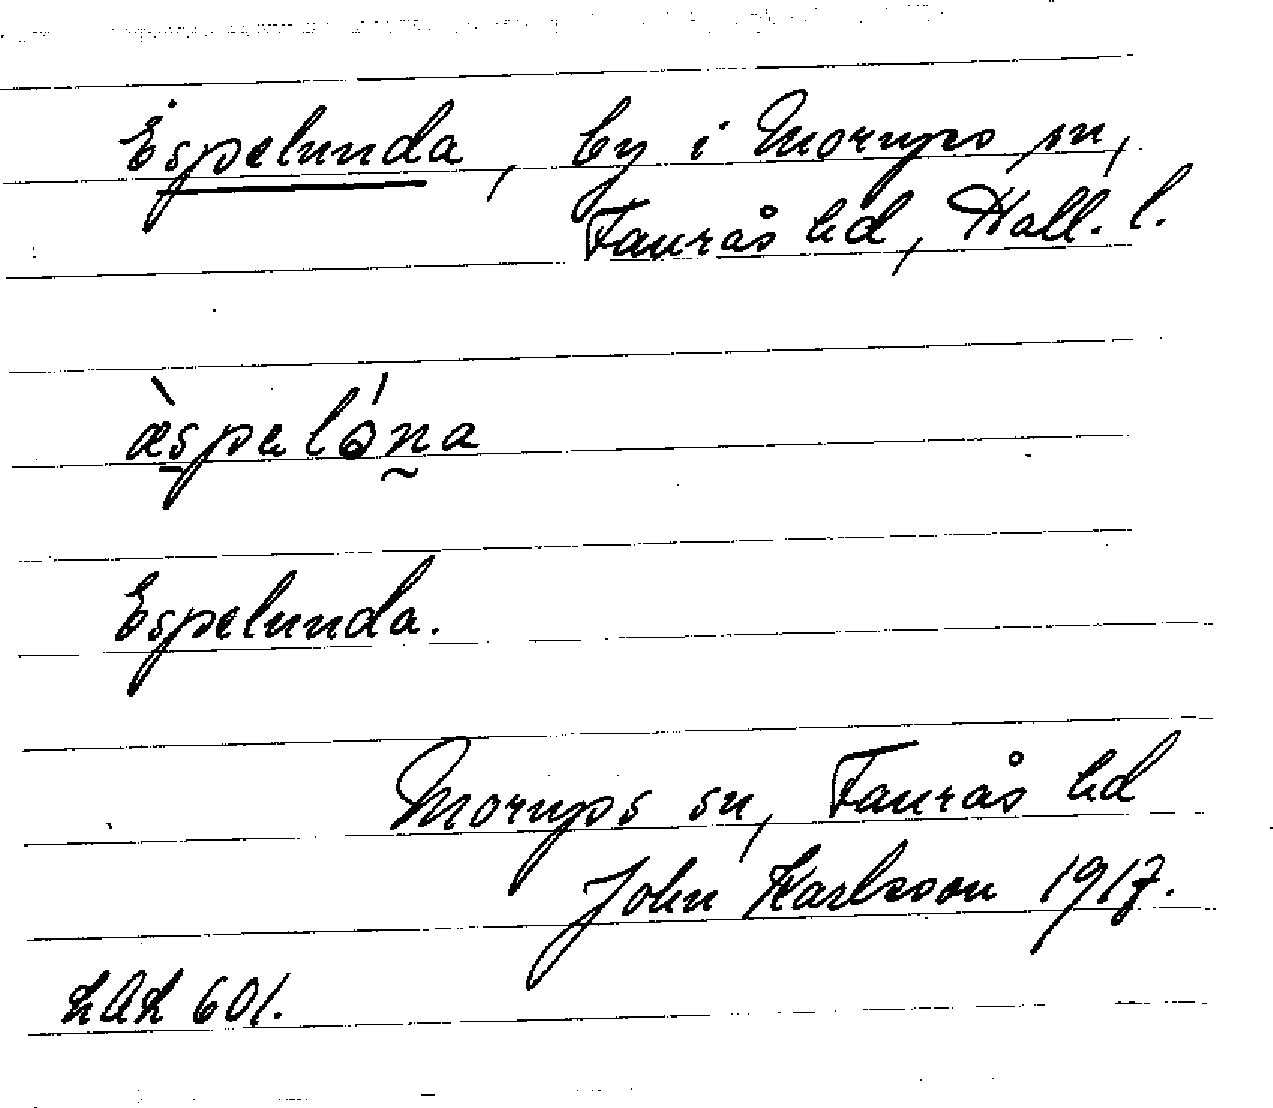 Espelunda, by i Morups sn,
Faurås hd, Hall. l.
æ̀spelǿna
Espelunda.
Morups sn, Faurås hd
John Karlsson 1917.
LAL 601.